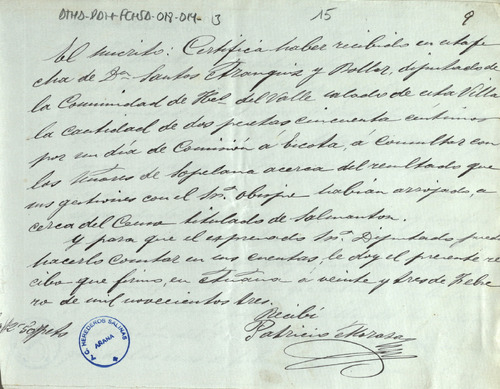 DTHD-DD14-FCHSD-018-014- 3 15 9
El suscrito: Certifica haber recibido en esta fe
cha de Dn. Santos Franquiz y Bollar, diputado de
la Comunidad de Hes. del Valle salado de esta Villa
la cantidad de dos pesetas cincuenta céntimos
por un dia de Comisión á Escota, á consultar con
los Señores de Sopelana acerca del resultado que
sus gestiones con el Sr. Obispo habían arrojado, a
cerca del Censo titulado de Salmanton.
Y para que el expresado Sr. Diputado pueda
hacerlo constar en sus cuentas, le doy el presente re
cibo que firmo, en Añana á veinte y tres de Febre
ro de mil novecientos tres.
Recibí
Patricio Moraza
T.C. HEREDEROS SALINAS
AÑANA